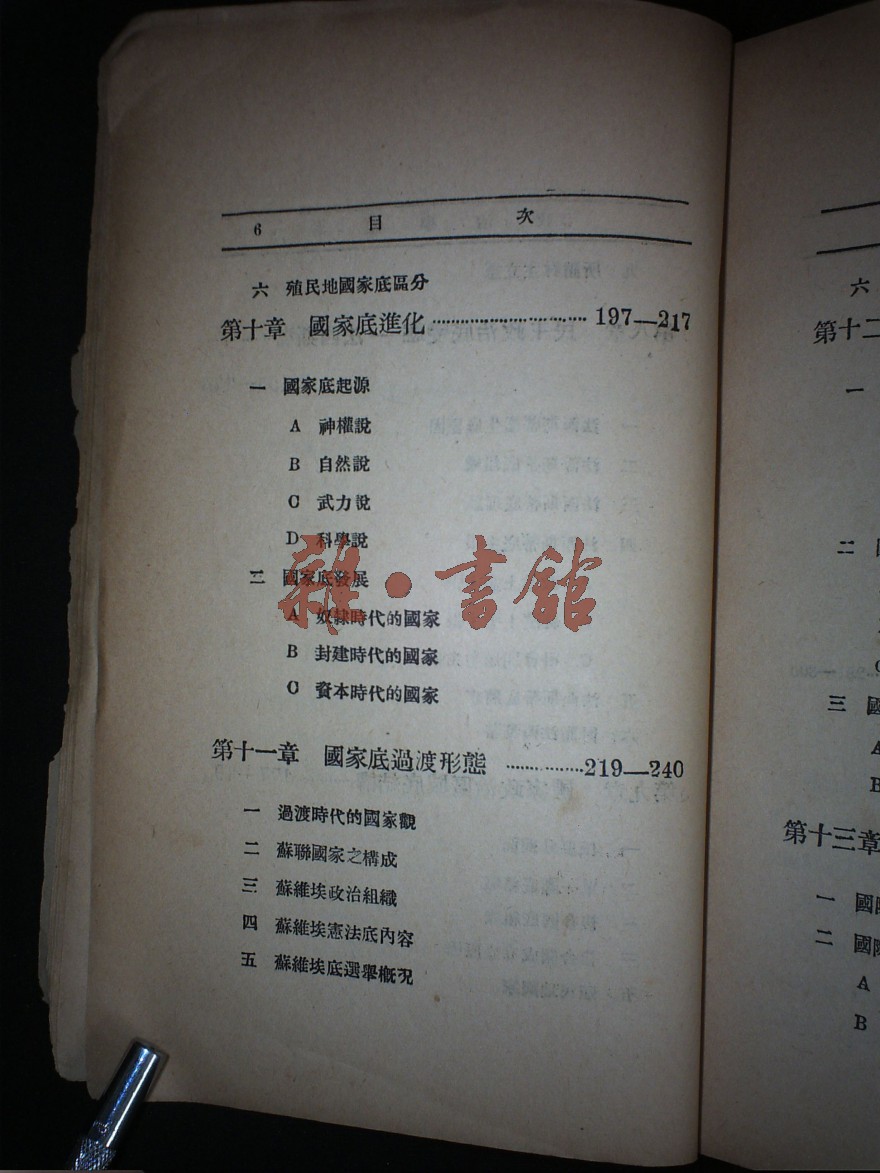 6 目 次
六 殖民地國家底區分
第十章 國家底進化 ……………………… 197—217
一 國家底起源
A 神權說
B 自然說
C 武力說
D 科學說
二 國家底發展
A 奴隸時代的國家
B 封建時代的國家
C 資本時代的國家
第十一章 國家底過渡形態 ……………… 219—240
一 過渡時代的國家觀
二 蘇聯國家之構成
三 蘇維埃政治組織
四 蘇維埃憲法底內容
五 蘇維埃底選舉概況
雜·書館
六
第十二
一
二
C
三 國
A
B
第十三章
一 國際
二 國際
A
B